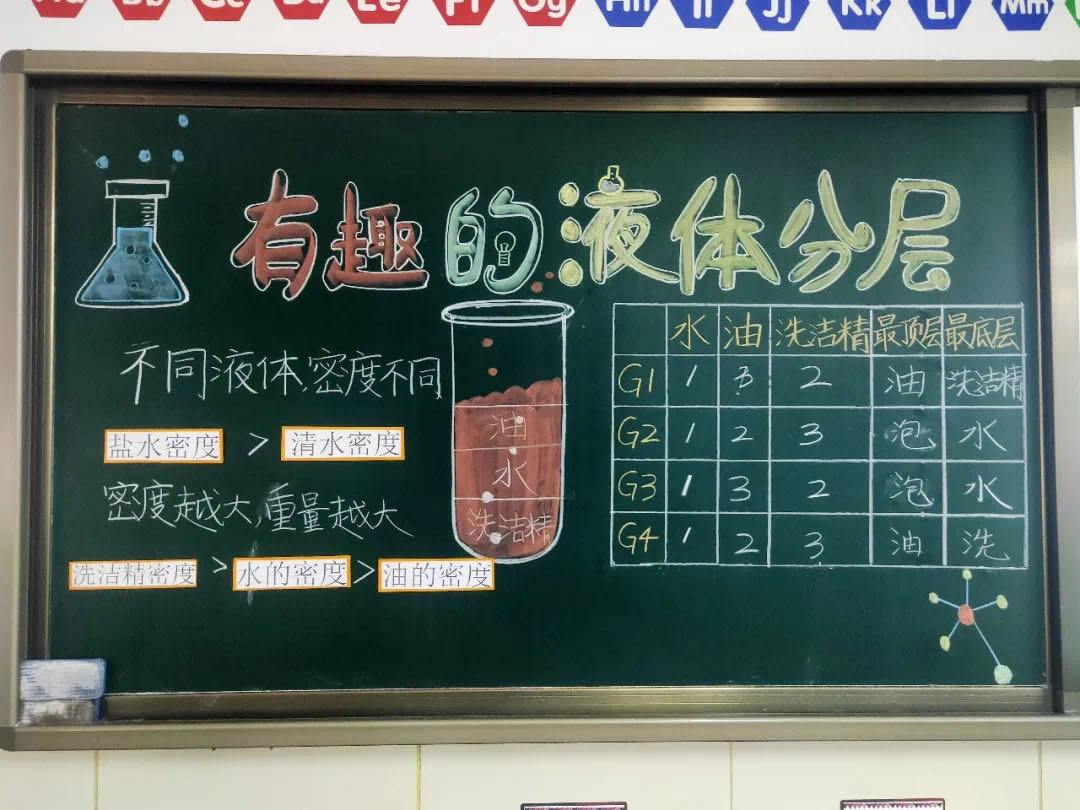 Aa Bb Cc Dd Ee Ff Gg Hh Ii Jj Kk Ll Mm
有趣的液体分层
不同液体,密度不同
盐水密度 > 清水密度
密度越大,重量越大
洗洁精密度 > 水的密度 > 油的密度
油
水
洗洁精
水 油 洗洁精 最顶层 最底层
G1 1 3 2 油 洗洁精
G2 1 2 3 泡 水
G3 1 3 2 泡 水
G4 1 2 3 油 洗